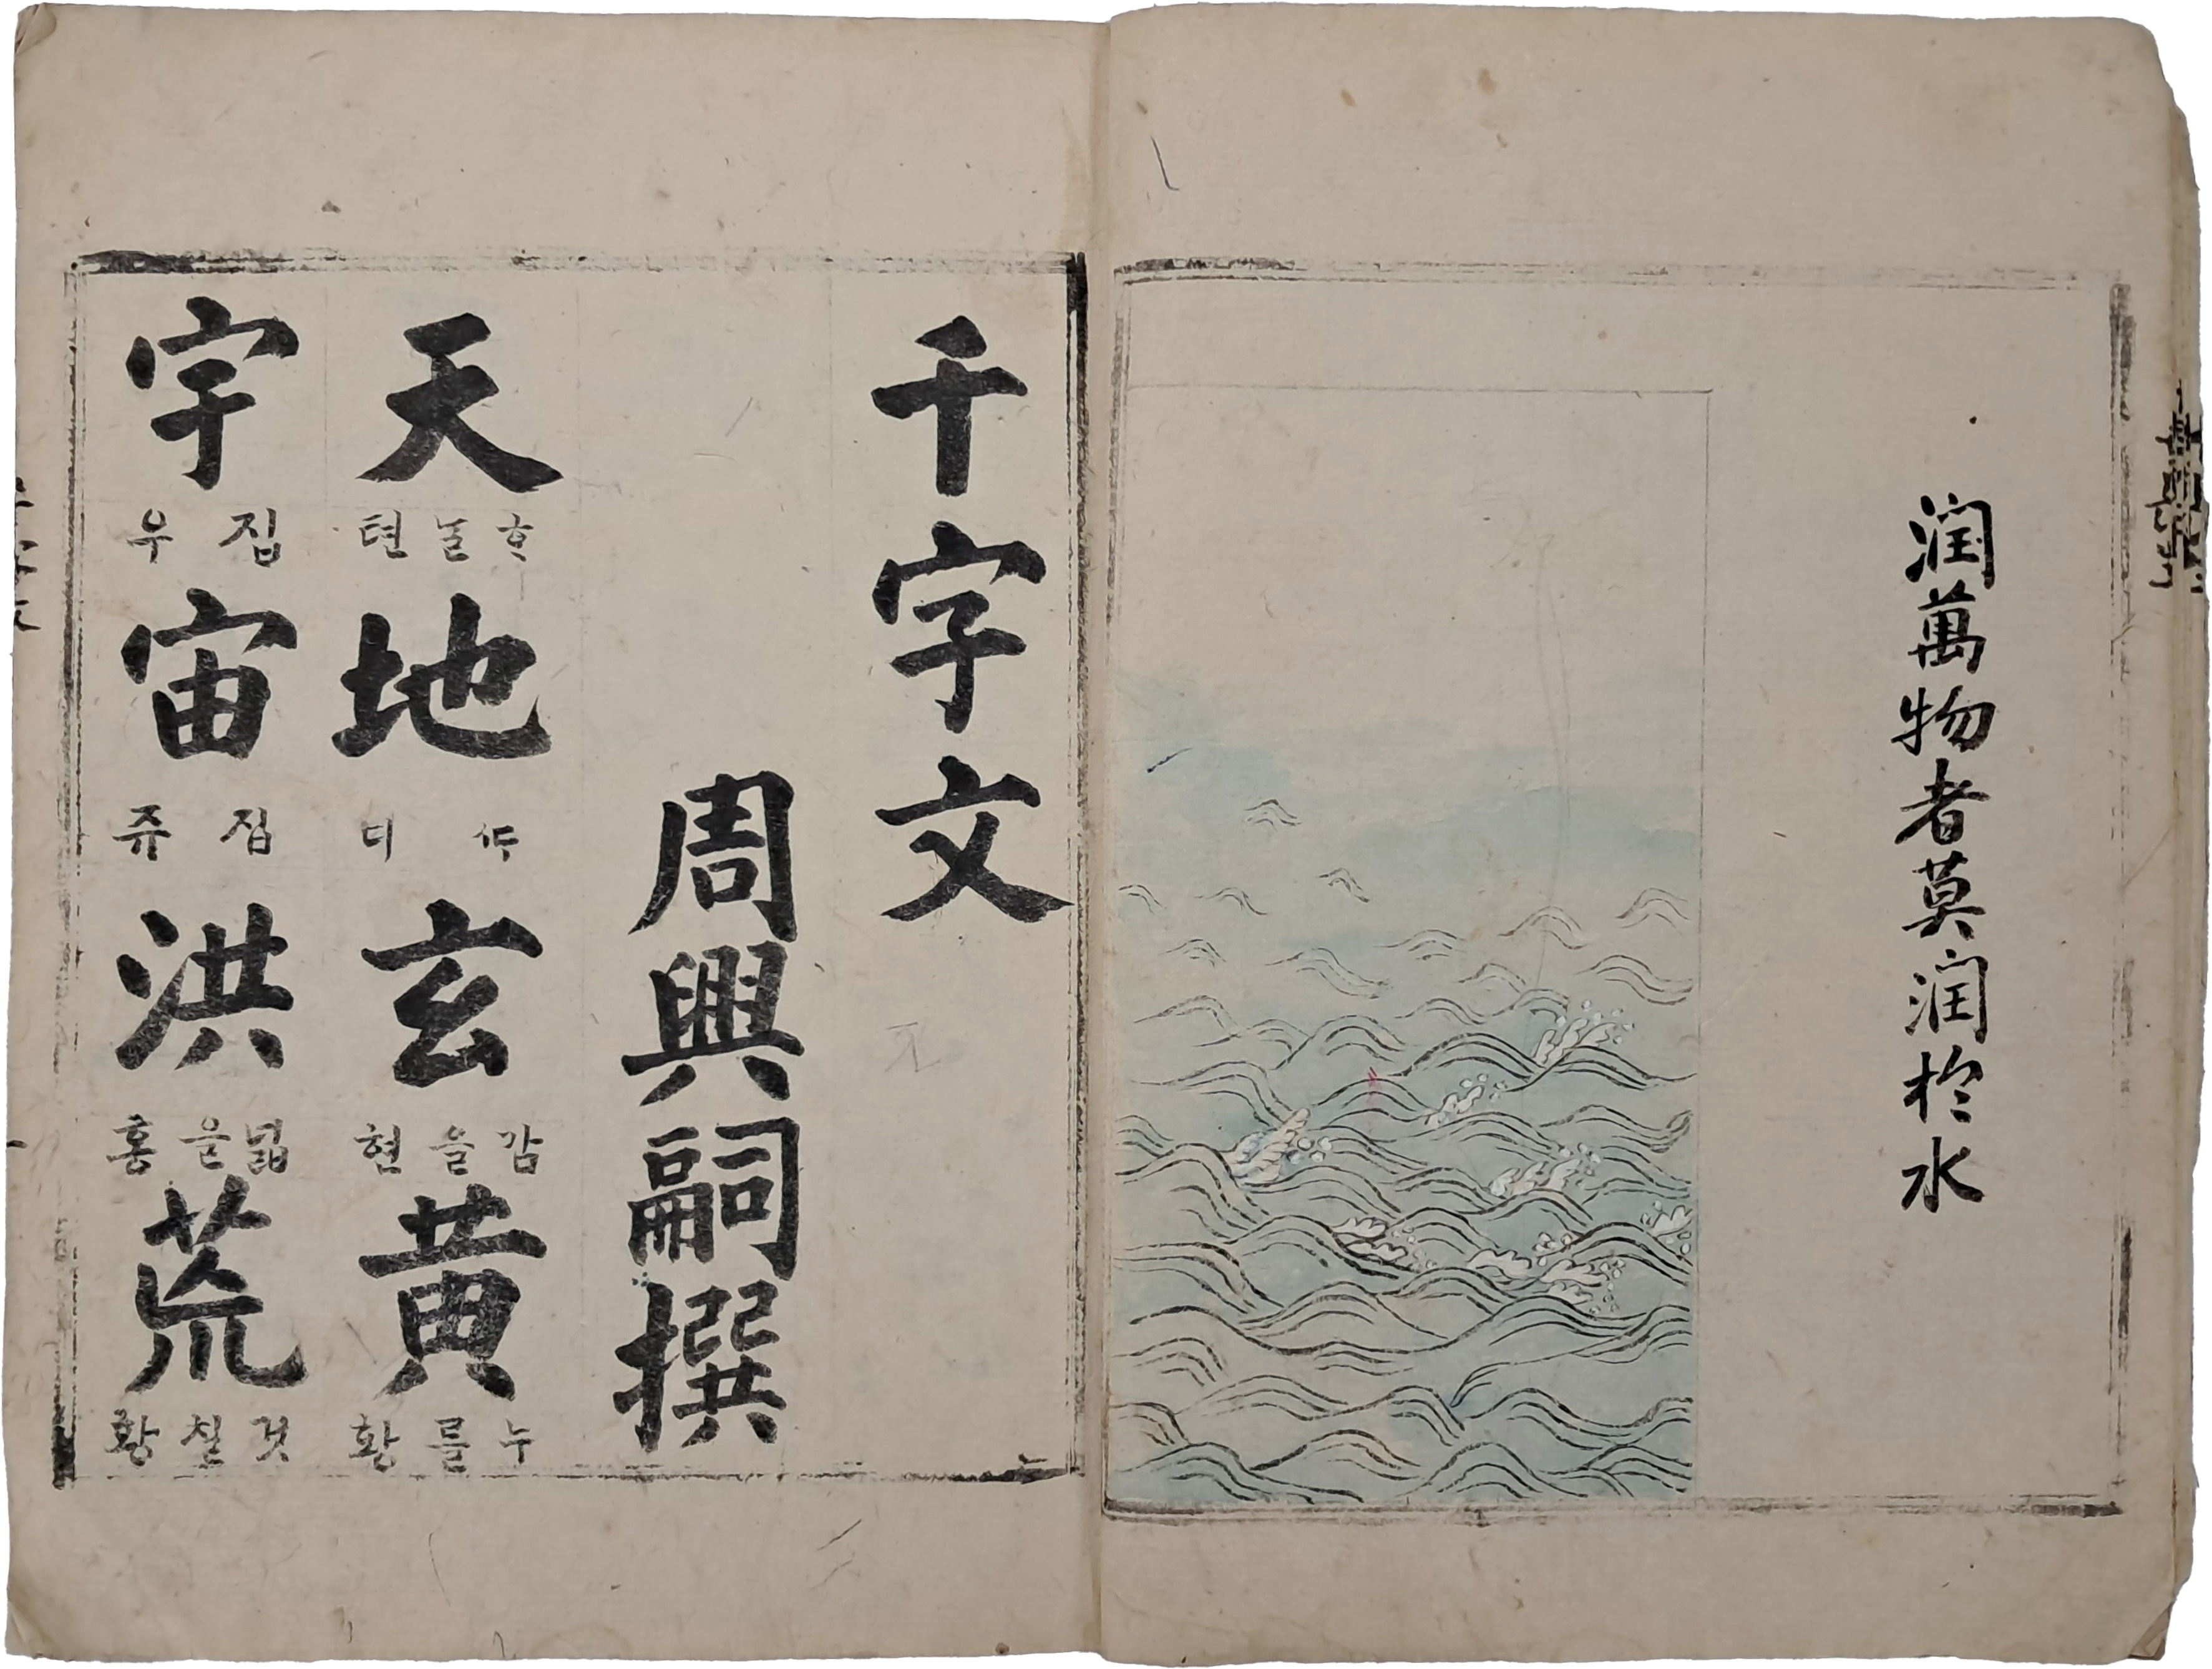 潤萬物者莫潤於水
千字文
周興嗣撰
天
ᄒᆞᄂᆞᆯ 텬
地
디
玄
감을 현
黃
누를 황
宇
집 우
宙
집 쥬
洪
넓을 홍
荒
것칠 황